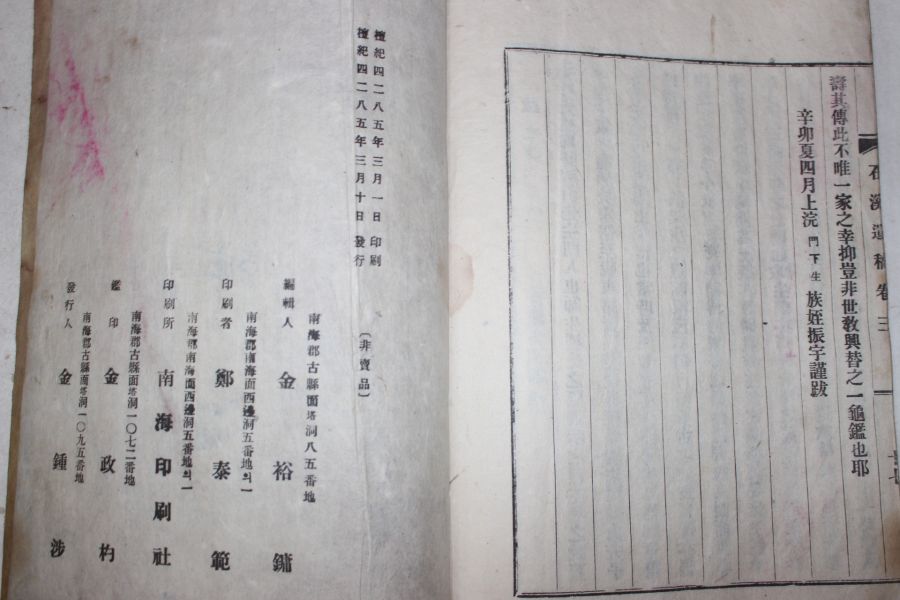 石溪遺稿卷三
壽其傳此不唯一家之幸抑豈非世敎興替之一龜鑑也耶
辛卯夏四月上浣 門下生 族姪振字謹跋
檀紀四二八五年三月一日 印刷
檀紀四二八五年三月十日 發行
(非賣品)
南海郡古縣面塔洞八五番地
編輯人 金裕鏞
南海郡南海面西邊洞五番地의一
印刷者 鄭泰範
南海郡南海面西邊洞五番地의一
印刷所 南海印刷社
南海郡古縣面塔洞一〇七二番地
鑑印 金政杓
南海郡古縣面塔洞一〇九五番地
發行人 金鍾涉